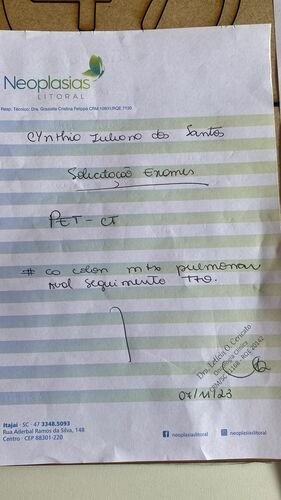 Neoplasias
LITORAL
Resp. Técnico: Dra. Graziela Cristina Felippa CRM 10831/RQE 7130
Cynthia Juliana dos Santos
Solicitação Exames
PET-CT
# ca colon mtx pulmonar
Aval seguimento TTO.
Dra. Letícia O. Cericato
Oncologia Clínica
07/11/23
Itajaí · SC · 47 3348.5093
Rua Aderbal Ramos da Silva, 148
Centro · CEP 88301-220
neoplasiaslitoral
neoplasiaslitoral